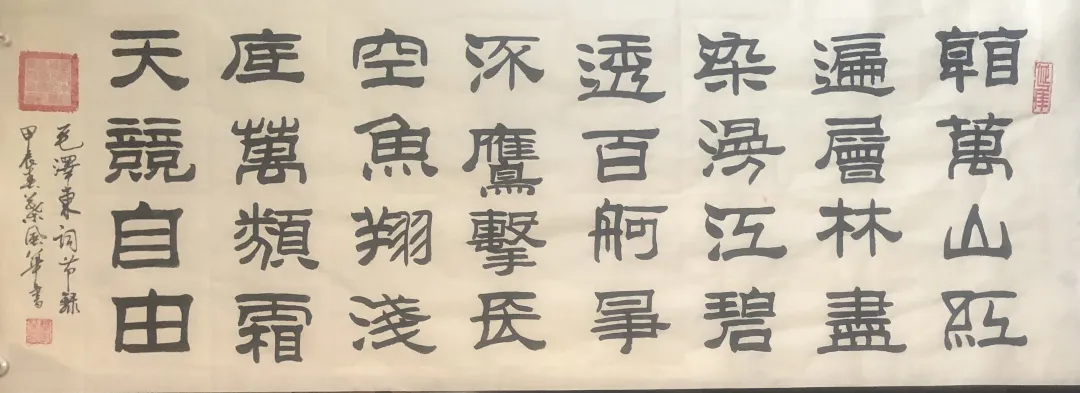 萬山紅
遍層林盡
染漫江碧
透百舸爭
流鷹擊長
空魚翔淺
底萬類霜
天競自由
毛澤東词节录
甲辰春風華書